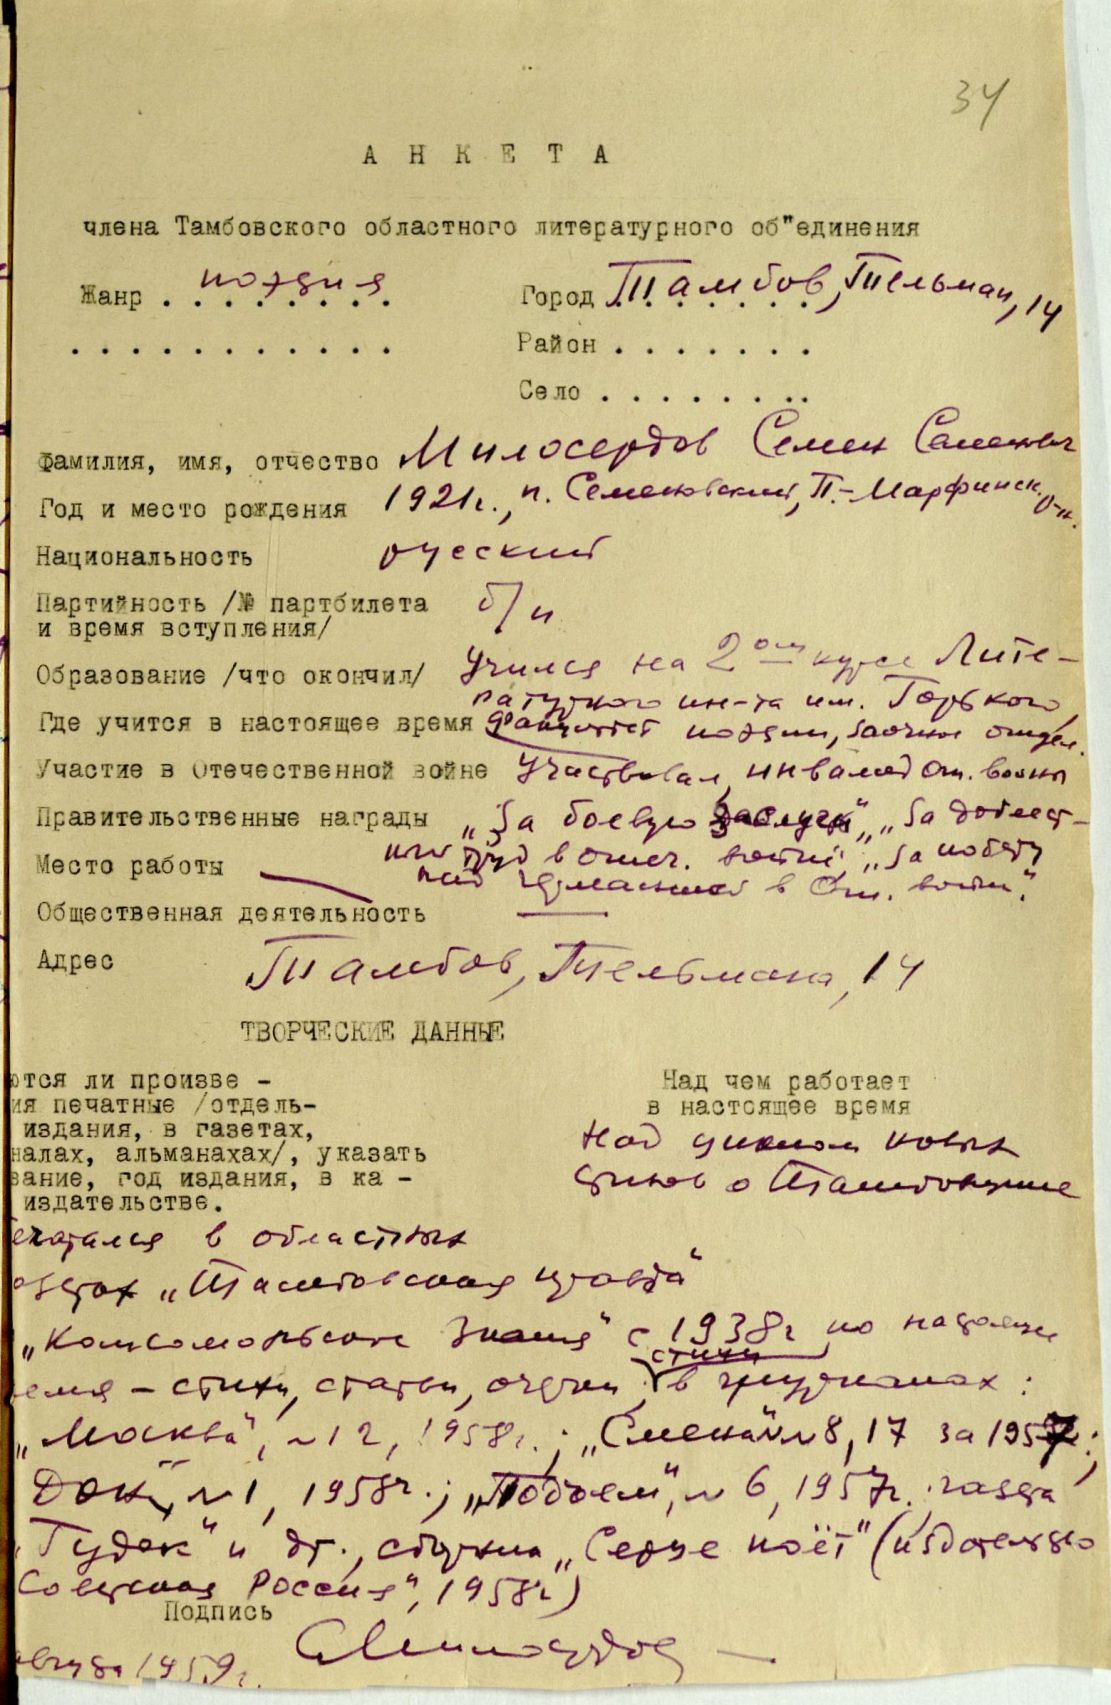 34
А Н К Е Т А
члена Тамбовского областного литературного об"единения
Жанр . . . поэзия . . .
Город Тамбов, Тельман, 14
. . . . . . . . . . .
Район . . . . . . .
Село . . . . . . . .
Фамилия, имя, отчество Милосердов Семен Семенович
Год и место рождения 1921г., п. Семеновский, П.-Марфинск. р-н.
Национальность русский
Партийность /№ партбилета б/п
и время вступления/
Образование /что окончил/ Учился на 2ом курсе Лите-
ратурного ин-та им. Горького,
Где учится в настоящее время факультет поэзии, заочное отдел.
Участие в Отечественной войне Участвовал, инвалид От. войны
Правительственные награды „За боевую заслуги", „За доблест-
ный труд в отеч. войне", „За победу
Место работы —
над Германией в От. войне".
Общественная деятельность —
Адрес Тамбов, Тельмана, 14
ТВОРЧЕСКИЕ ДАННЫЕ
ются ли произве -
ия печатные /отдель-
издания, в газетах,
налах, альманахах/, указать
вание, год издания, в ка -
издательстве.
Над чем работает
в настоящее время
Над циклом новых
стихов о Тамбовщине
ечатался в областных
азетах „Тамбовская правда"
„Комсомольское знамя" с 1938г по настоящее
емя – стихи, статьи, очерки, стихи в журналах:
„Москва", №12, 1958г.; „Смена" №№8, 17 за 1957г.;
Дон", №1, 1958г.; „Подъем", №6, 1957г., газета
„Гудок" и др., сборник „Сердце поёт" (издательство
Советская Россия", 1958г)
Подпись
СМилосердов
августа 1959г.